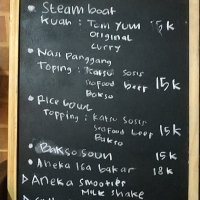 • Steam boat
Kuah : Tom yum 15k
original
curry
• Nasi Panggang
Toping : Katsu Sosis
Seafood beef 15k
Bakso
• Rice bowl
Topping : Katsu Sosis
Seafood Beef 15k
Bakso
• Bakso soun 15k
• Aneka Ika bakar 18k
> Aneka smooties
Milk shake